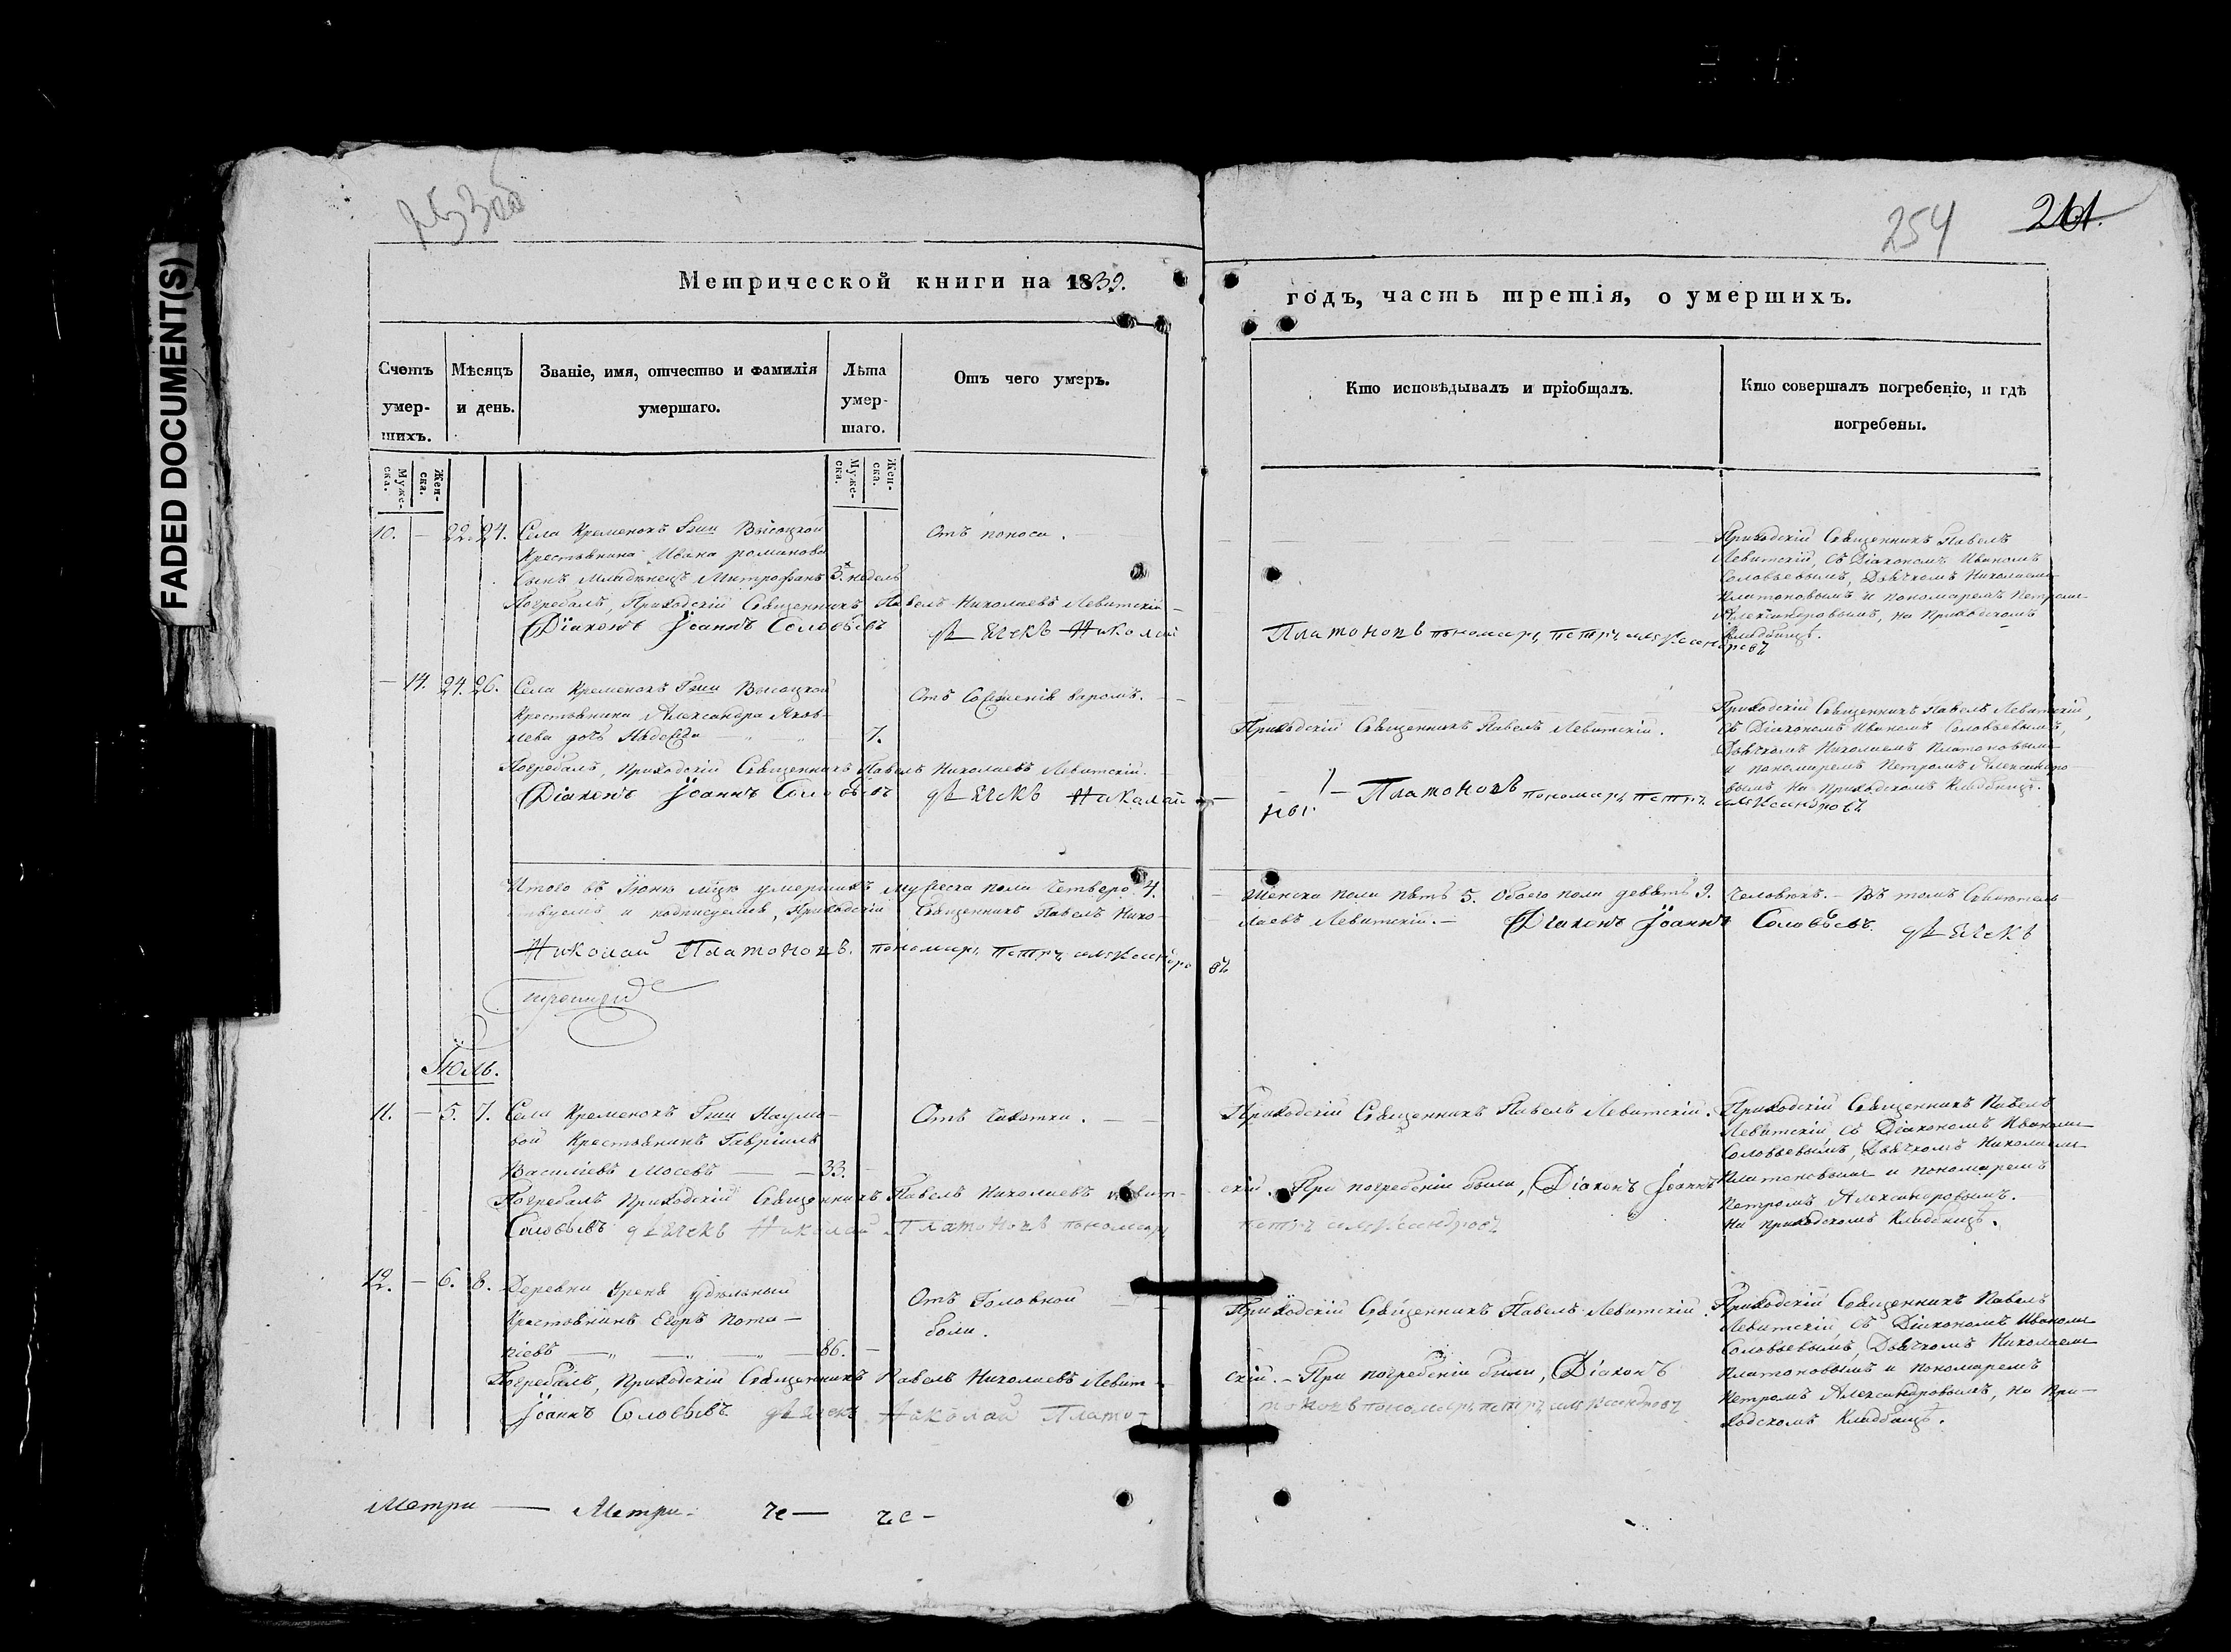 FADED DOCUMENT(S)
254
261.
Метрической книги на 1839.
годъ, часть третія, о умершихъ.
Счетъ умер-шихъ.
Мѣсяцъ и день.
Званіе, имя, отчество и фамилія умершаго.
Лѣта умер-шаго.
Отъ чего умеръ.
Кто исповѣдывалъ и пріобщалъ.
Кто совершалъ погребеніе, и гдѣ погребены.
Муже-ска.
Жен-ска.
Муже-ска.
Жен-ска.
10. — 22. 24. Села Кременокъ Гжи Высоцкой
Крестьянина Ивана романова
Сынъ Младенецъ Митрофанъ 3. недель
Отъ поноса.
Приходскій Священникъ Павелъ
Левитскій, съ Діакономъ Иваномъ
Соловьевымъ, Дьячкомъ Николаемъ
Платоновымъ и пономаремъ Петромъ
Александровымъ, на Приходскомъ
Кладбищѣ.
Погребалъ, Приходскій Священникъ Павелъ Николаевъ Левитскій —
Діаконъ Іоаннъ Соловьевъ дьячекъ Николай Платоновъ пономарь петръ александровъ
— 14. 24. 26. Села Кременокъ Гжи Высоцкой
Крестьянина Александра Яков-
лева дочь Надежда — 7.
Отъ Сожженія варомъ.
Приходскій Священникъ Павелъ Левитскій.
Приходскій Священникъ Павелъ Левитскій,
съ Діакономъ Иваномъ Соловьевымъ,
Дьячкомъ Николаемъ Платоновымъ
и пономаремъ Петромъ Александро-
вымъ на Приходскомъ Кладбищѣ.
Погребалъ, Приходскій Священникъ Павелъ Николаевъ Левитскій.
Діаконъ Іоаннъ Соловьевъ дьячекъ Николай — Платоновъ пономарь петръ александровъ
Итого въ Іюнѣ мцѣ умершихъ мужеска пола Четверо 4. — Женска пола пять 5. Обоего пола девять 9. Человѣкъ. — Въ томъ Свидѣтель-
ствуемъ и подписуемся, Приходскій Священникъ Павелъ Нико-лаевъ Левитскій. — Діаконъ Іоаннъ Соловьевъ. дьячекъ
Николай Платоновъ. пономарь петръ александровъ
Іюль.
11. — 5. 7. Села Кременокъ Гжи Наумо-
вой Крестьянинъ Гавріилъ
Василіевъ Мосевъ — 33.
Отъ Чахотки.
Приходскій Священникъ Павелъ Левитскій.
Приходскій Священникъ Павелъ
Левитскій съ Діакономъ Иваномъ
Соловьевымъ, Дьячкомъ Николаемъ
Платоновымъ и пономаремъ
Петромъ Александровымъ.
На приходскомъ Кладбищѣ.
Погребалъ приходскій Священникъ Павелъ Николаевъ Левит-скій. — При погребеніи были, Діаконъ Іоаннъ
Соловьевъ дьячекъ Николай Платоновъ пономарь петръ александровъ
12. — 6. 8. Деревни Урень удѣльный
Крестьянинъ Егоръ Пота-
піевъ — 86. —
Отъ Головной
боли.
Приходскій Священникъ Павелъ Левитскій.
Приходскій Священникъ Павелъ
Левитскій, съ Діакономъ Иваномъ
Соловьевымъ, Дьячкомъ Николаемъ
Платоновымъ и пономаремъ
Петромъ Александровымъ, на При-
ходскомъ Кладбищѣ.
Погребалъ, Приходскій Священникъ Павелъ Николаевъ Левит-скій. — При погребеніи были, Діаконъ
Іоаннъ Соловьевъ дьячекъ Николай Плато-тоновъ пономарь петръ александровъ
Метри — Метри- че — че -